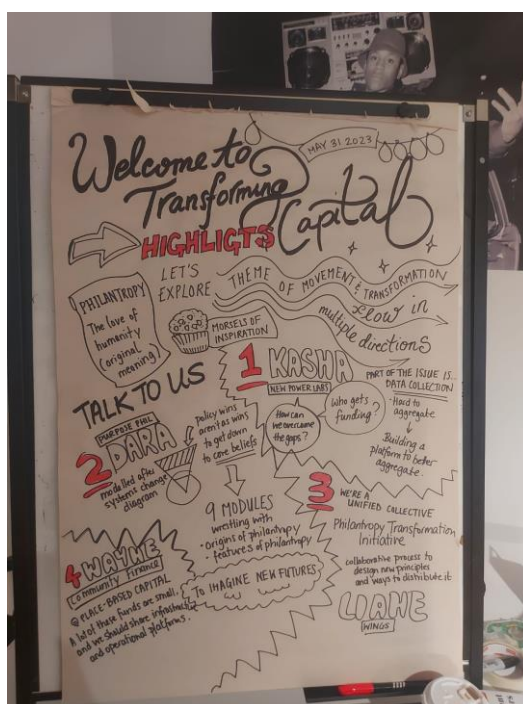 MAY 31 2023
Welcome to
Transforming
Capital
HIGHLIGTS
LET'S
EXPLORE
THEME OF MOVEMENT & TRANSFORMATION
flow in
multiple directions
PHILANTROPY
The love of
humanity
(original
meaning)
MORSELS OF
INSPIRATION
TALK TO US
1 KASHA
NEW POWER LABS
How can
we overcome
the gaps?
Who gets
funding?
PART OF THE ISSUE IS...
DATA COLLECTION
- Hard to
aggregate
Building a
platform to better
aggregate.
PURPOSE PHIL
2 DARA
modelled after
systems change
diagram
policy wins
aren't as wins
to get down
to core beliefs
9 MODULES
wrestling with
• origins of philantropy
• features of philantropy
TO IMAGINE NEW FUTURES
3 WE'RE A
UNIFIED COLLECTIVE
Philantropy Transformation
Initiative
collaborative process to
design new principles
and ways to distribute it
WINGS
4 WAYNE
Community Finance
@ PLACE-BASED CAPITAL
A lot of these funds are small,
and we should share infrastructure
and operational platforms.